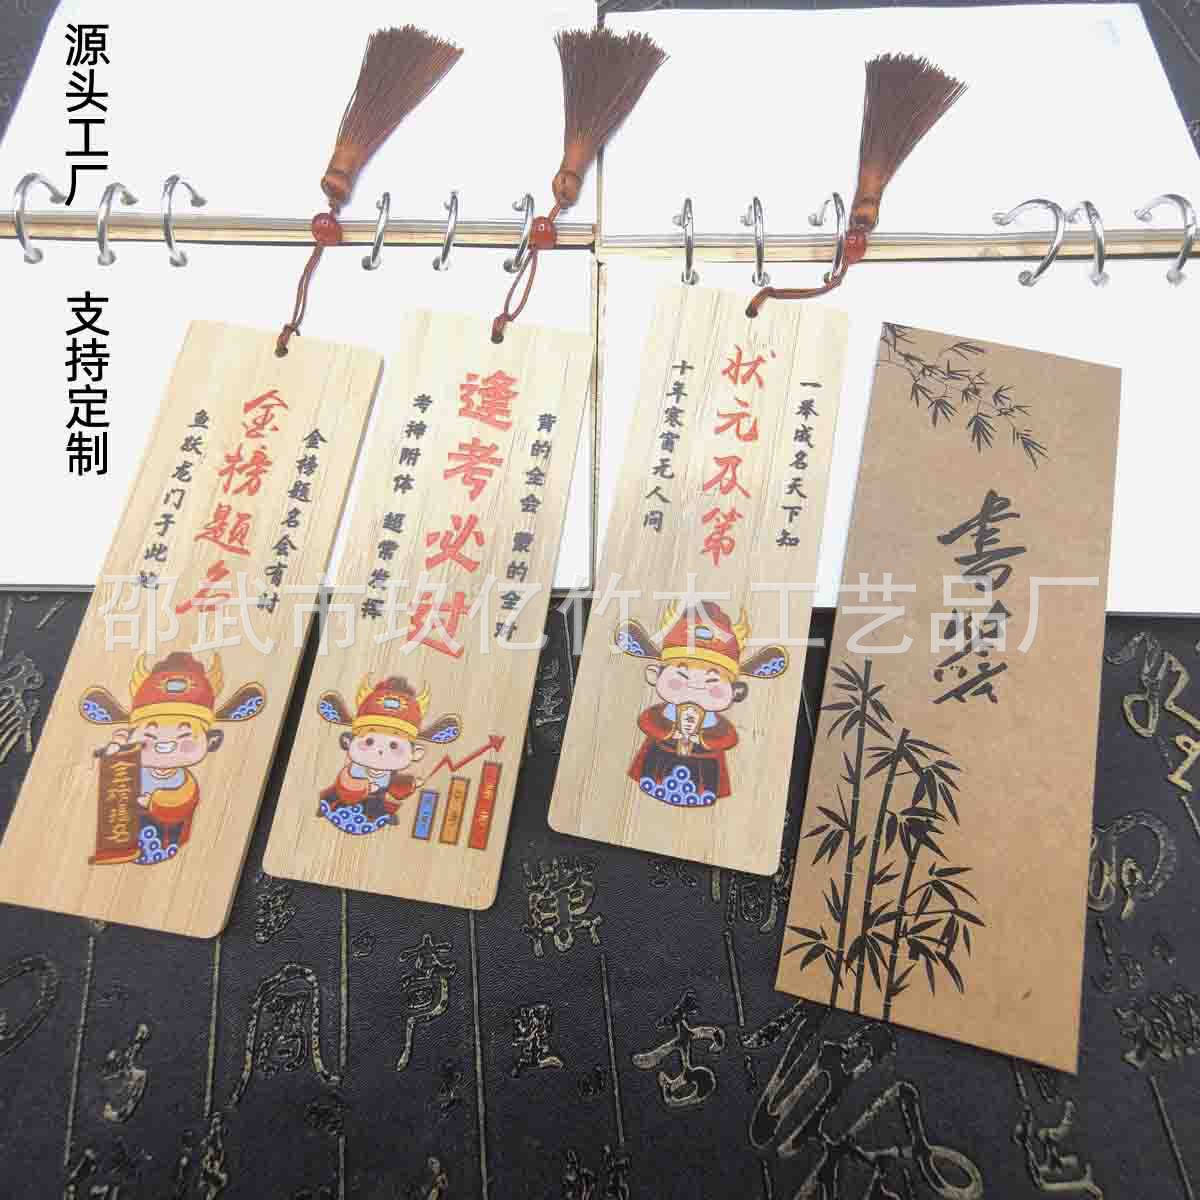 源头工厂
支持定制
金榜题名
金榜题名会有时
鱼跃龙门于此地
逢考必过
背的全会 蒙的全对
考神附体 超常发挥
状元及第
一举成名天下知
十年寒窗无人问
书签
邵武市玖亿竹木工艺品厂